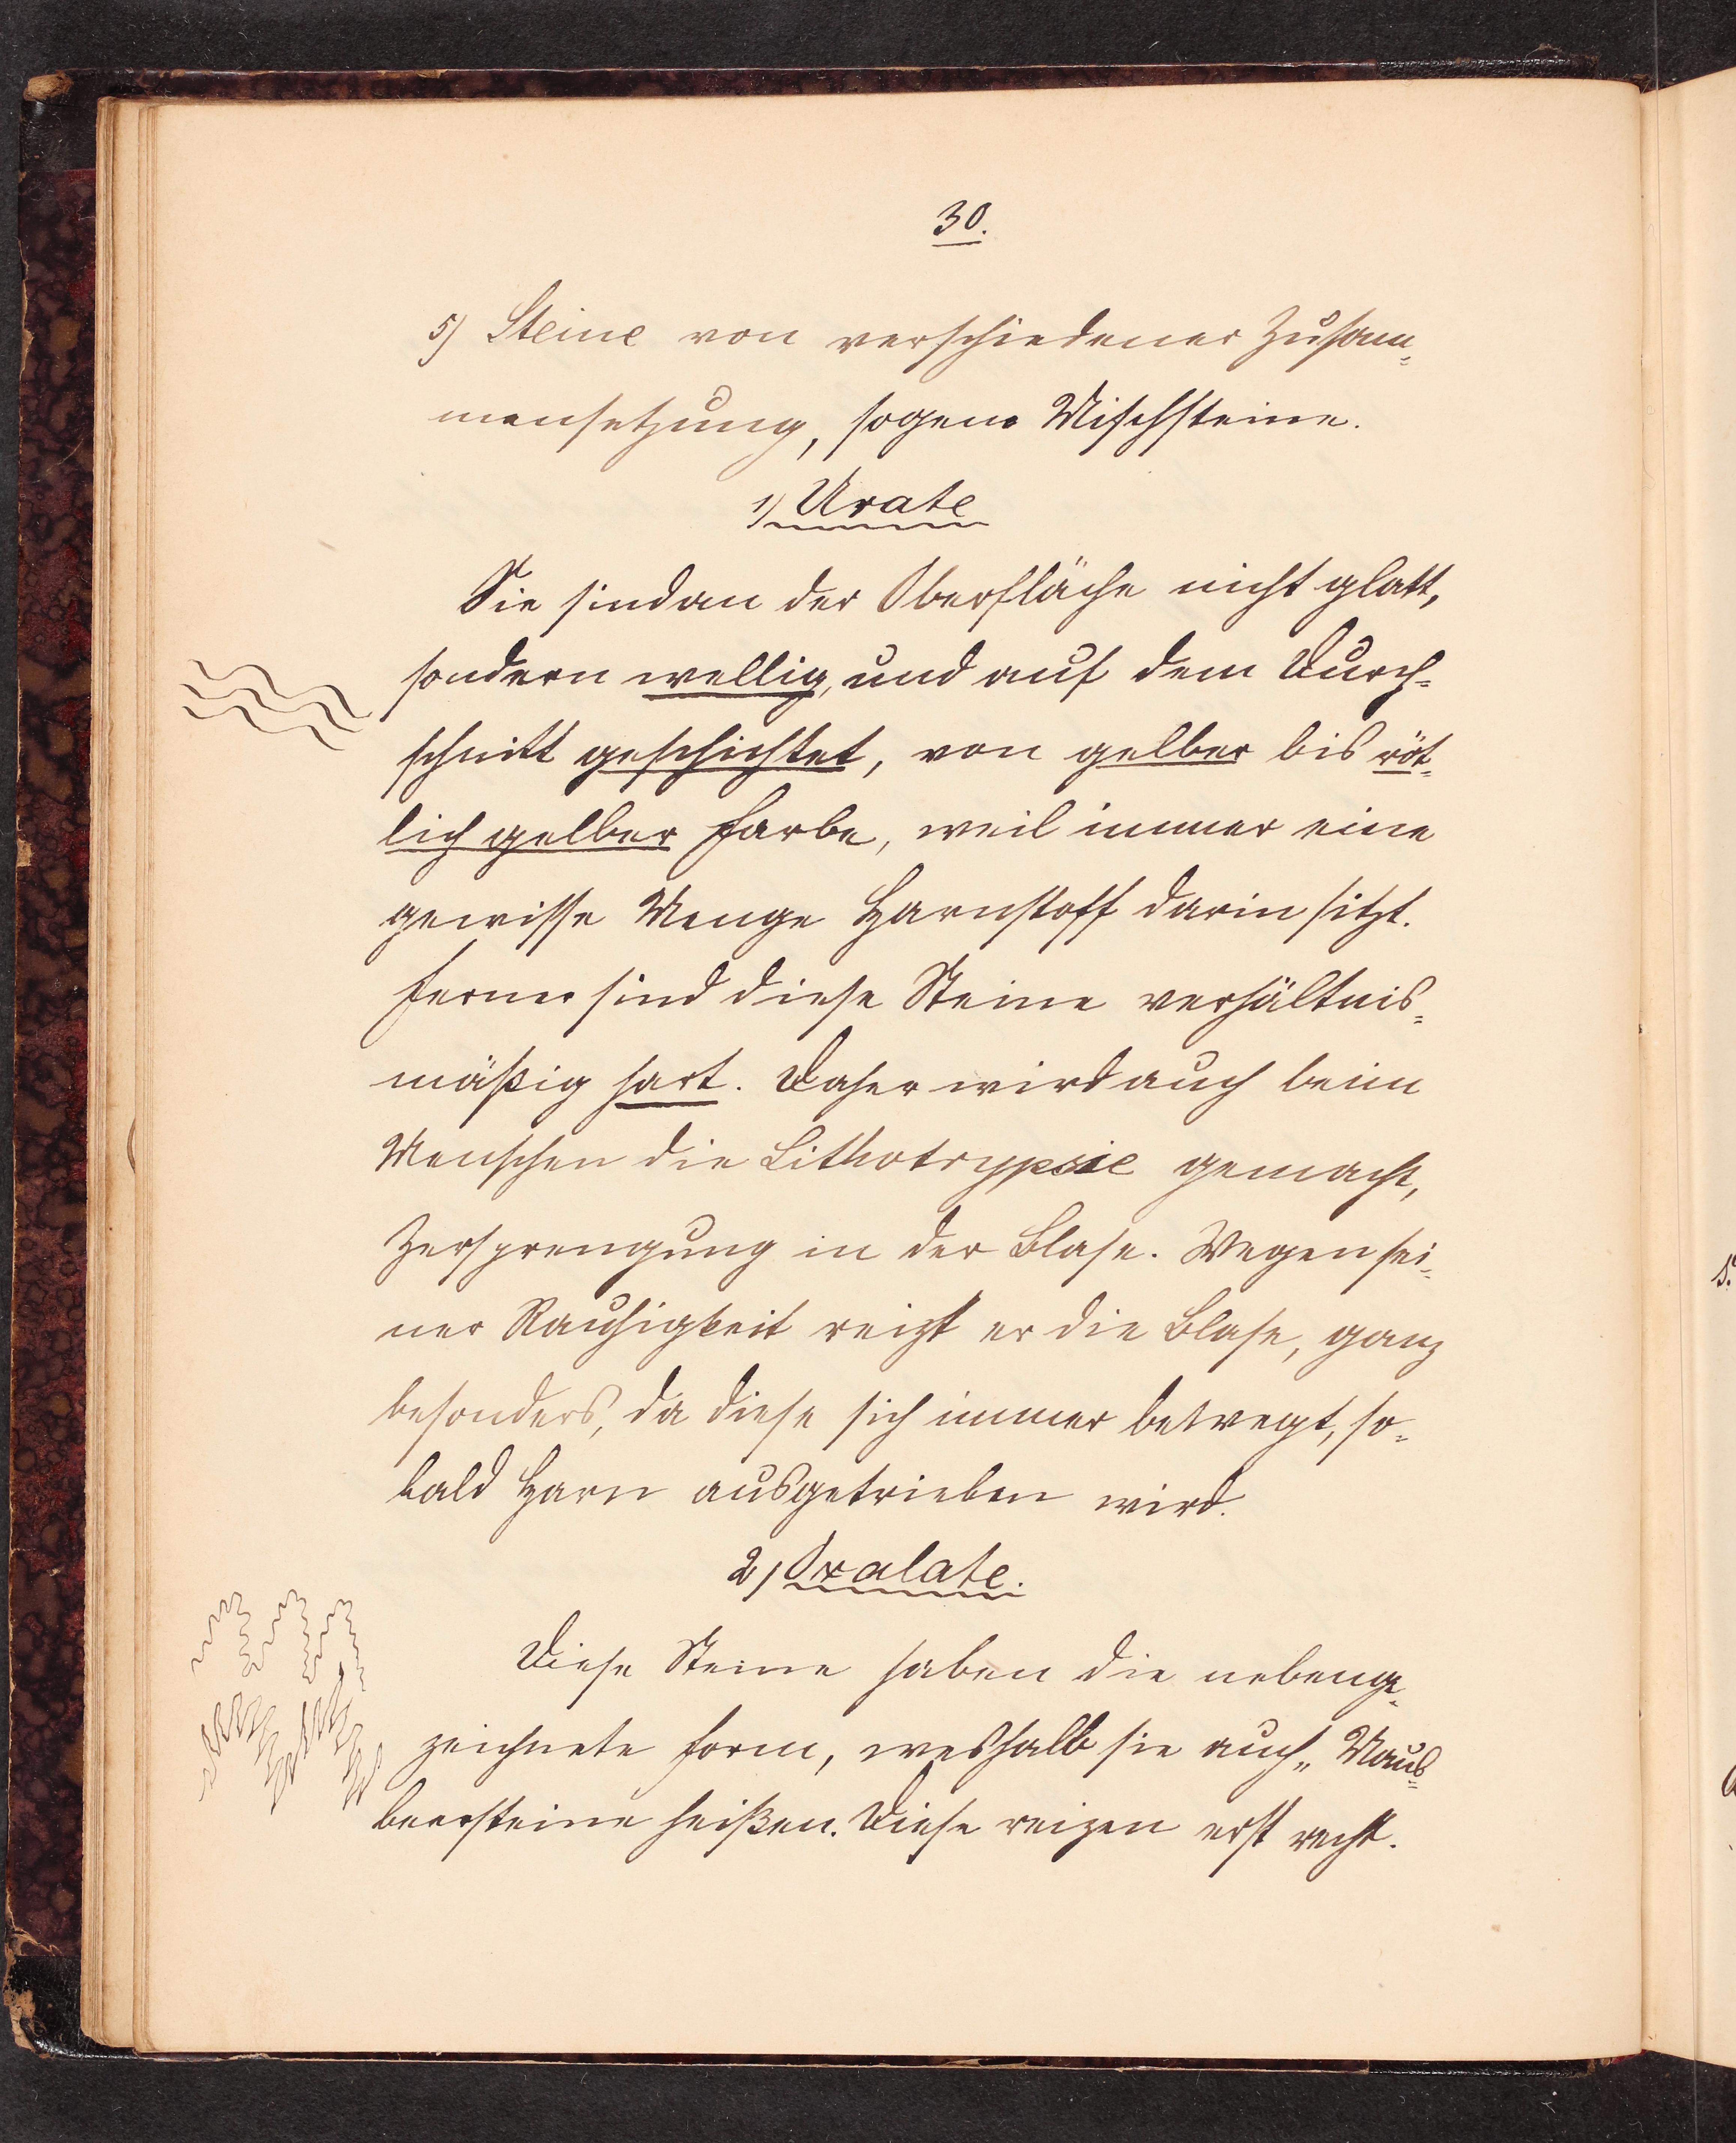 30.
5) Steine von verschiedener Zusam=
mensetzung, sogen. Mischsteine.
1) Urate
Sie sind an der Oberfläche nicht glatt,
sondern wellig, und auf dem Durch=
schnitt geschichtet, von gelber bis röt=
lich gelber Farbe, weil immer eine
gewisse Menge Harnstoff darin sitzt.
Ferner sind diese Steine verhältnis=
mäßig hart. Daher wird auch beim
Menschen die Lithotrypsie gemacht,
Zersprengung in der Blase. Wegen sei=
ner Rauhigkeit reizt er die Blase, ganz
besonders, da diese sich immer bewegt, so=
bald Harn ausgetrieben wird.
2) Oxalate.
Diese Steine haben die nebenge=
zeichnete Form, weshalb sie auch „Maul=
beersteine heißen. Diese reizen erst recht.